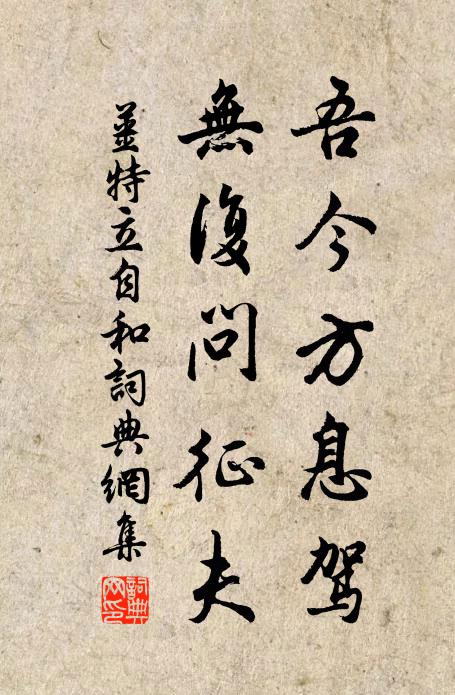 吾今方息駕
無復問征夫
姜特立自和詞典網集
詞典網印